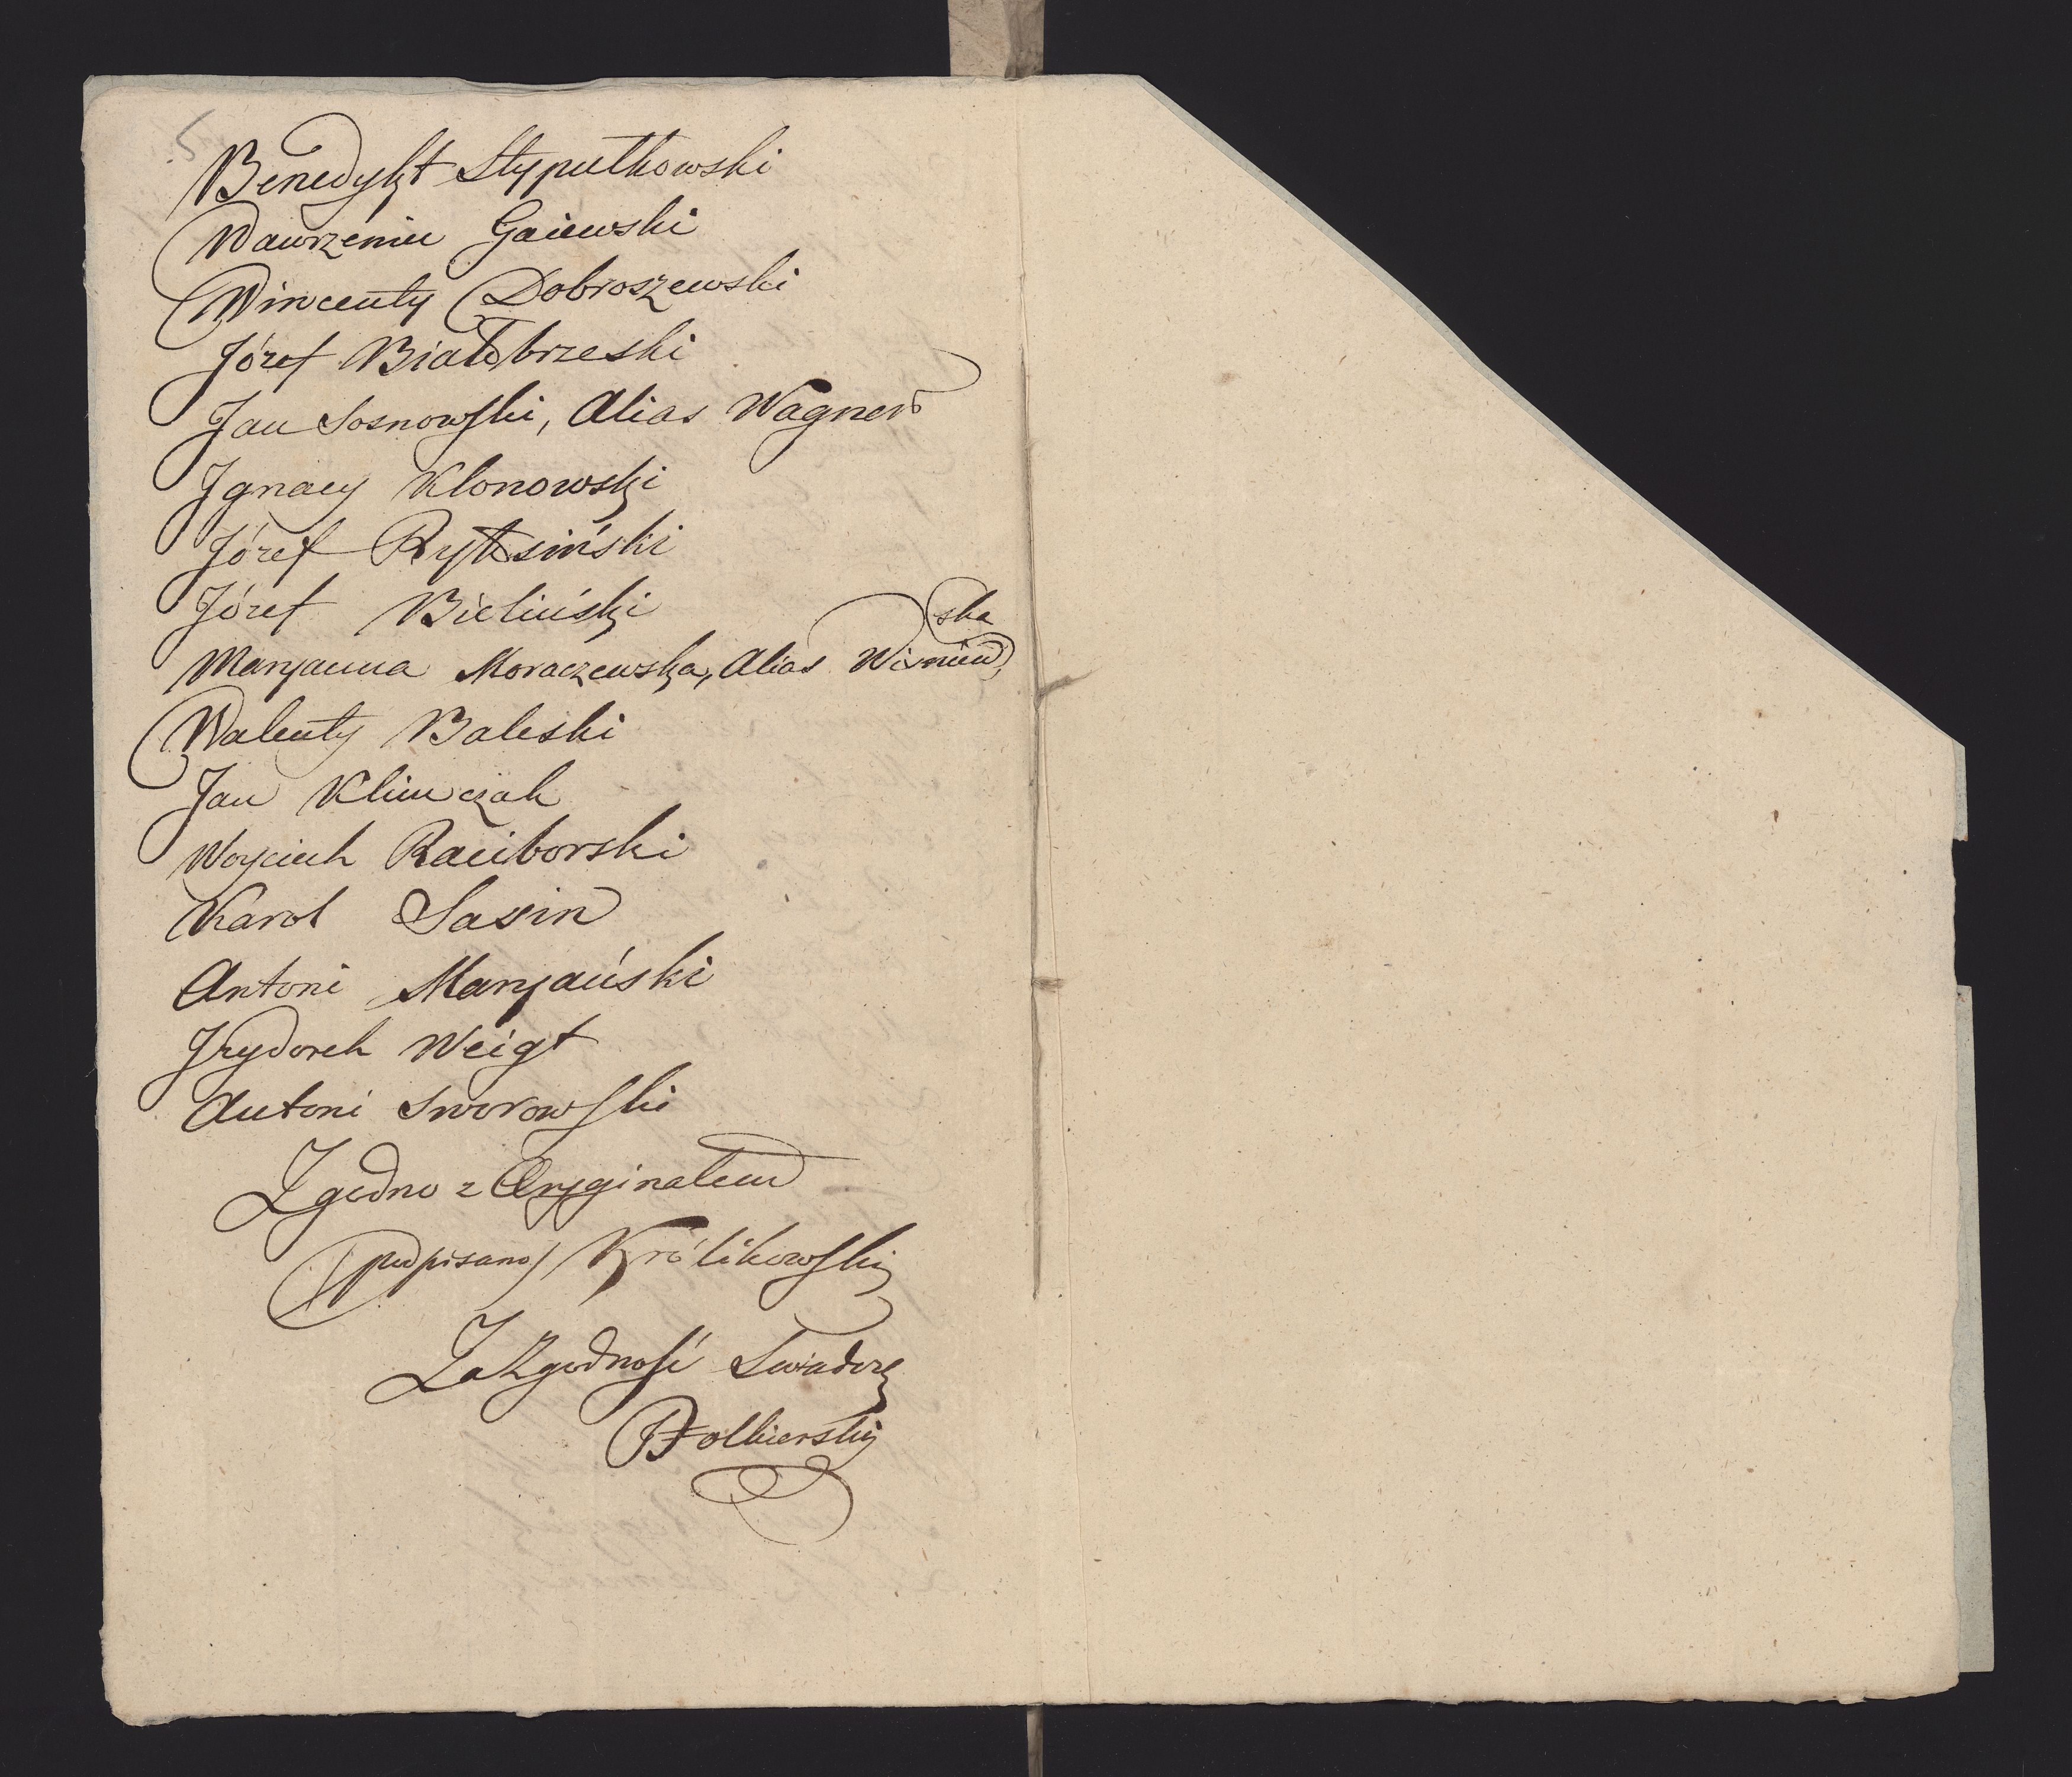 5
Benedykt Stypułkowski
Wawrzeniec Gaiewski
Wincenty Dobroszewski
Józef Białobrzeski
Jan Sosnowski, Alias Wagner
Ignacy Klonowski
Józef
Józef Bieliński
Maryanna Moraczewska, Alias Wisniewska
Walenty Baleski
Jan Klimczak
Woyciech Raciborski
Karol Sasin
Antoni Maryański
Izydorek Weigt
Antoni Sworowski
Zgodno z Oryginałem
(podpisano) Królikowski
Za Zgodność Swiadczę